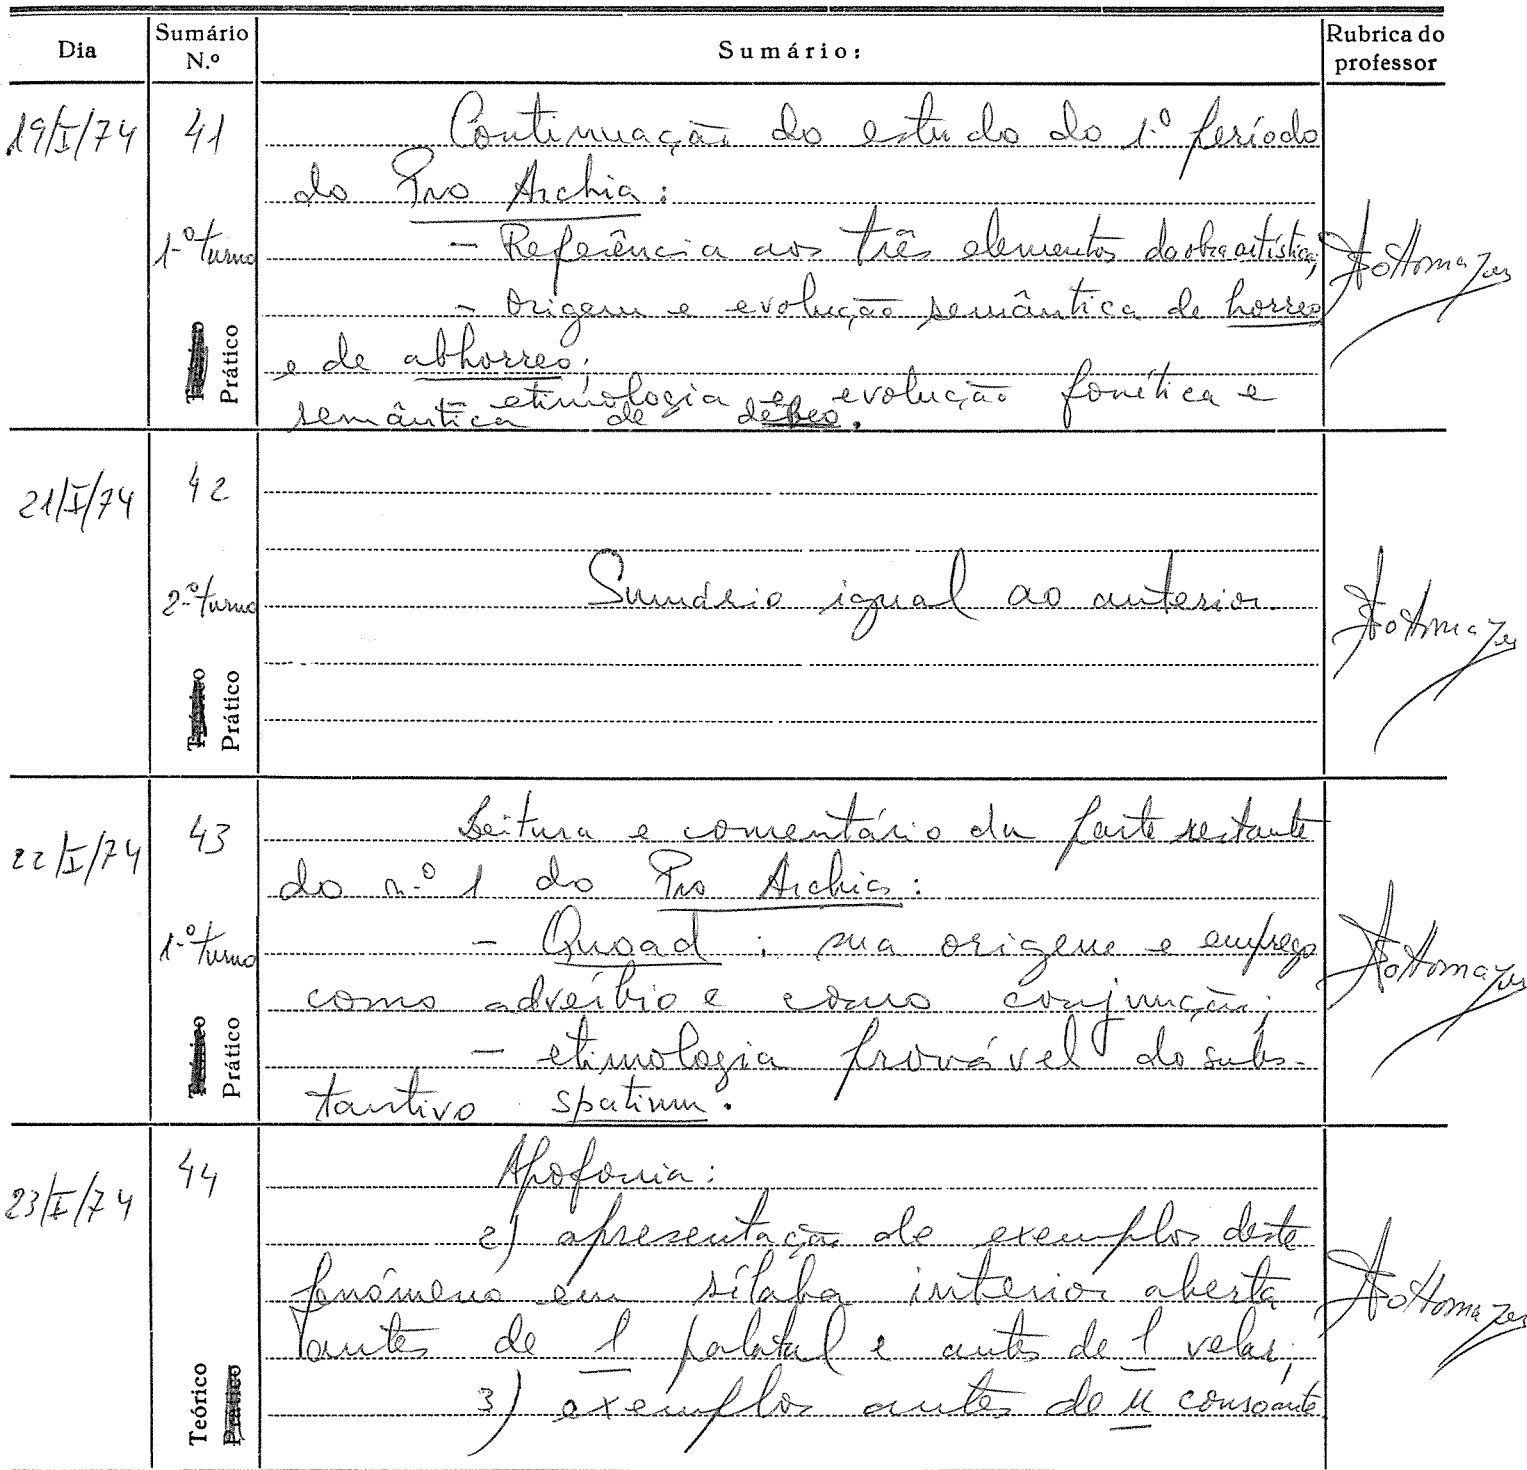 Dia
Sumário N.º
Sumário:
Rubrica do professor
19/I/74
41
1.º turno
Prático
Continuação do estudo do 1.º período
do Pro Archia:
- Referência aos três elementos da obra artística;
- Origem e evolução semântica de horreo
e de abhorreo;
etimologia e evolução fonética e
semântica de debeo.
21/I/74
42
2.º turno
Teórico
Prático
Sumário igual ao anterior.
22/I/74
43
1.º turno
Prático
Leitura e comentário da parte restante
do n.º 1 do Pro Archia:
- Quoad: sua origem e emprego
como advérbio e como conjunção;
- etimologia provável do subs-
tantivo spatium.
23/I/74
44
Teórico
Prático
Apofonia:
2) apresentação de exemplos deste
fenómeno em sílaba interior aberta
antes de l palatal e antes de l velar;
3) exemplos antes de u consoante